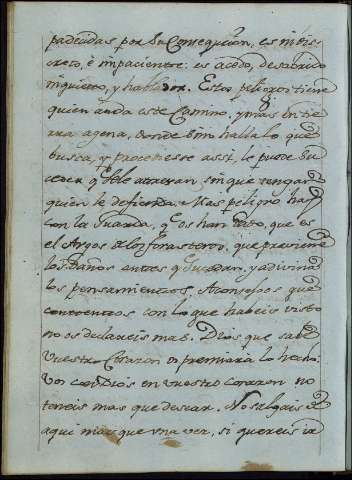 padecidas por su Consequcion, es indis-
creto, è impaciente: es acedo, desabrido
inquieto, y hablador. Estos peligros tiene
quien anda este Camino, y mas en tie-
rra agena, donde bien halla lo que
busca, y procediesse assi, le puede su-
ceder q̃ se le atrevan sin que tengan
quien le defienda. Mas peligro hay
con la Guarda, q̃ os han dado, que es
el Argos de los forasteros, que previene
los Daños antes q̃ sucedan, y adivina
los pensamientos. Aconsejoos que
contentos con lo que habeis visto
no os declareis mas. Dios que sabe
vuestro Corazon os premiarà lo hecho.
Vos con Dios en vuestro corazon no
teneis mas que desear. No salgais de
aqui mas que una vez, si quereis ir